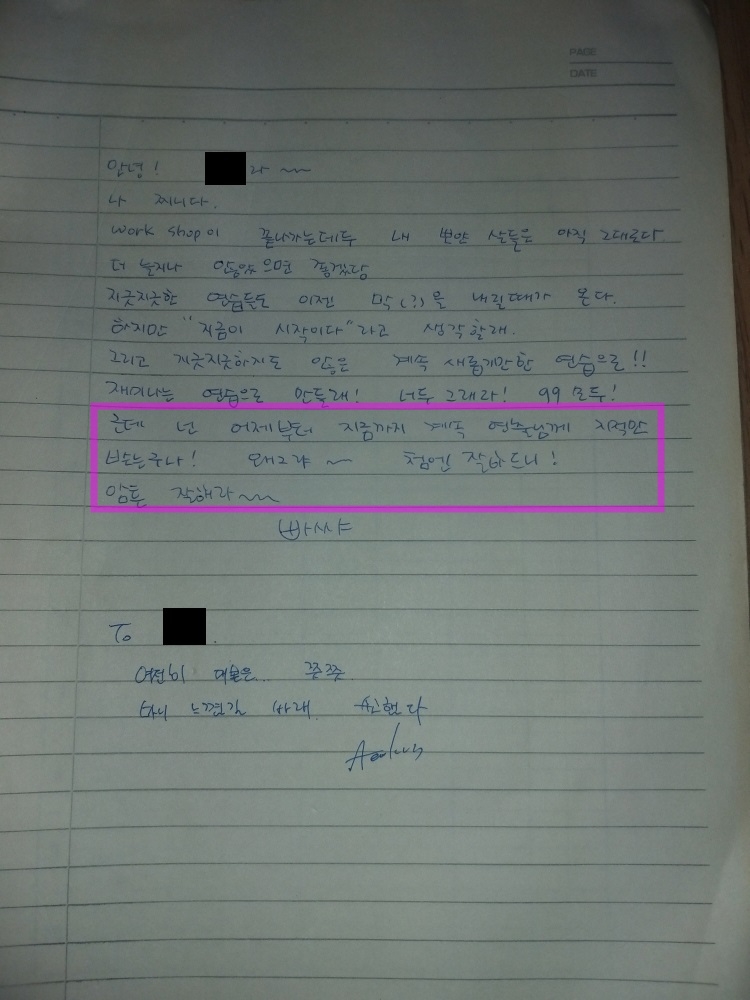 PAGE
DATE
안녕! 라 ~~
나 찌니다.
work shop이 끝나가는데두 내 뽀얀 살들은 아직 그대로다
더 늘지나 않았으면 좋겠당
지긋지긋한 연습들도 이젠 막(?)을 내릴때가 온다.
하지만 "지금이 시작이다"라고 생각할래.
그리고 지긋지긋하지도 않은 계속 새롭기만한 연습으로!!
재미나는 연습으로 만들래! 너두 그래라! 99 모두!
근데 넌 어제부터 지금까지 계속 연출님께 지적만
받는구나! 왜그랴 ~ 첨엔 잘하드니!
암튼 잘해라~~
빠샤
To .
여전히 대본은... 쯧쯧.
타니 느꼈길 바래.